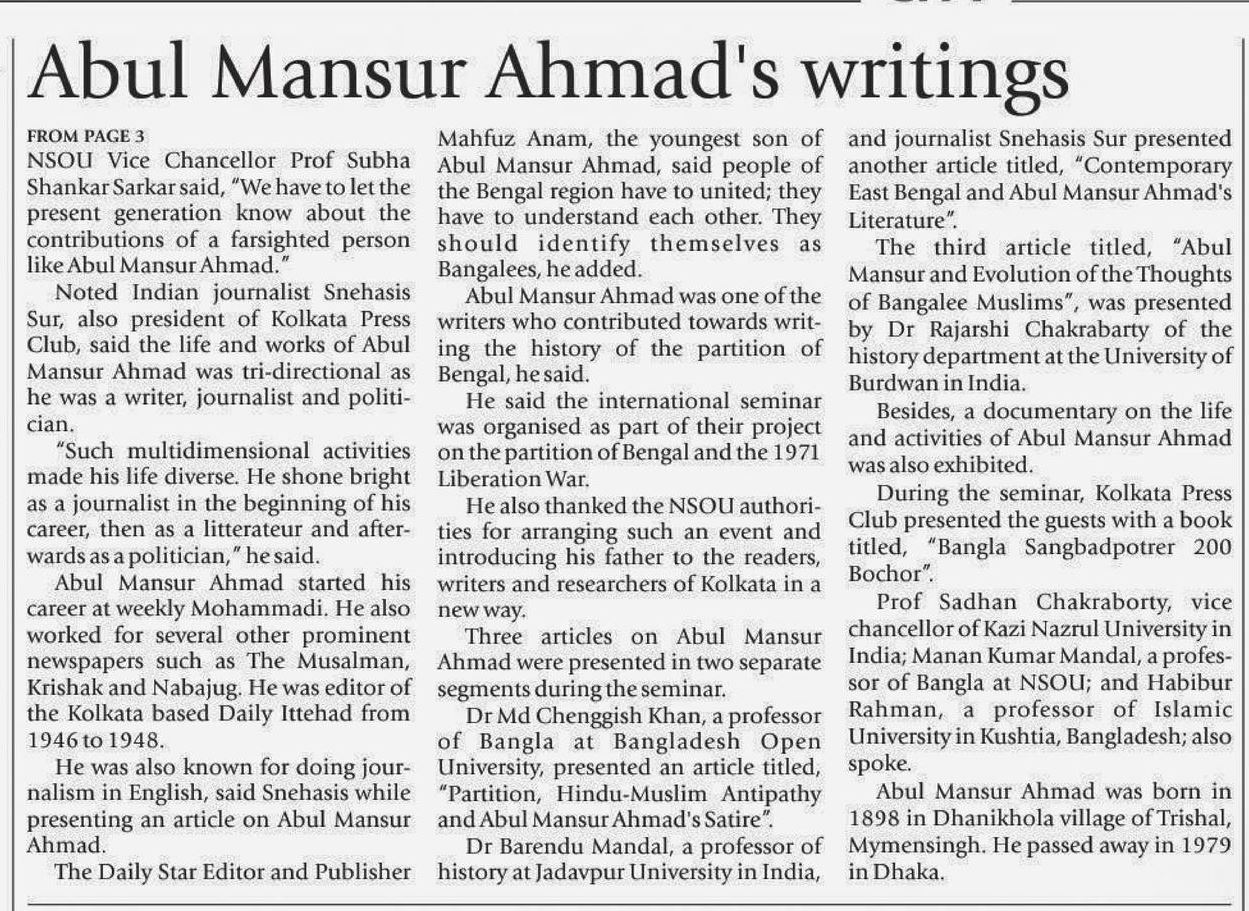 Abul Mansur Ahmad's writings
FROM PAGE 3
NSOU Vice Chancellor Prof Subha
Shankar Sarkar said, “We have to let the
present generation know about the
contributions of a farsighted person
like Abul Mansur Ahmad.”
Noted Indian journalist Snehasis
Sur, also president of Kolkata Press
Club, said the life and works of Abul
Mansur Ahmad was tri-directional as
he was a writer, journalist and politi-
cian.
“Such multidimensional activities
made his life diverse. He shone bright
as a journalist in the beginning of his
career, then as a litterateur and after-
wards as a politician,” he said.
Abul Mansur Ahmad started his
career at weekly Mohammadi. He also
worked for several other prominent
newspapers such as The Musalman,
Krishak and Nabajug. He was editor of
the Kolkata based Daily Ittehad from
1946 to 1948.
He was also known for doing jour-
nalism in English, said Snehasis while
presenting an article on Abul Mansur
Ahmad.
The Daily Star Editor and Publisher
Mahfuz Anam, the youngest son of
Abul Mansur Ahmad, said people of
the Bengal region have to united; they
have to understand each other. They
should identify themselves as
Bangalees, he added.
Abul Mansur Ahmad was one of the
writers who contributed towards writ-
ing the history of the partition of
Bengal, he said.
He said the international seminar
was organised as part of their project
on the partition of Bengal and the 1971
Liberation War.
He also thanked the NSOU authori-
ties for arranging such an event and
introducing his father to the readers,
writers and researchers of Kolkata in a
new way.
Three articles on Abul Mansur
Ahmad were presented in two separate
segments during the seminar.
Dr Md Chenggish Khan, a professor
of Bangla at Bangladesh Open
University, presented an article titled,
“Partition, Hindu-Muslim Antipathy
and Abul Mansur Ahmad's Satire”.
Dr Barendu Mandal, a professor of
history at Jadavpur University in India,
and journalist Snehasis Sur presented
another article titled, “Contemporary
East Bengal and Abul Mansur Ahmad's
Literature”.
The third article titled, “Abul
Mansur and Evolution of the Thoughts
of Bangalee Muslims”, was presented
by Dr Rajarshi Chakrabarty of the
history department at the University of
Burdwan in India.
Besides, a documentary on the life
and activities of Abul Mansur Ahmad
was also exhibited.
During the seminar, Kolkata Press
Club presented the guests with a book
titled, “Bangla Sangbadpotrer 200
Bochor”.
Prof Sadhan Chakraborty, vice
chancellor of Kazi Nazrul University in
India; Manan Kumar Mandal, a profes-
sor of Bangla at NSOU; and Habibur
Rahman, a professor of Islamic
University in Kushtia, Bangladesh; also
spoke.
Abul Mansur Ahmad was born in
1898 in Dhanikhola village of Trishal,
Mymensingh. He passed away in 1979
in Dhaka.